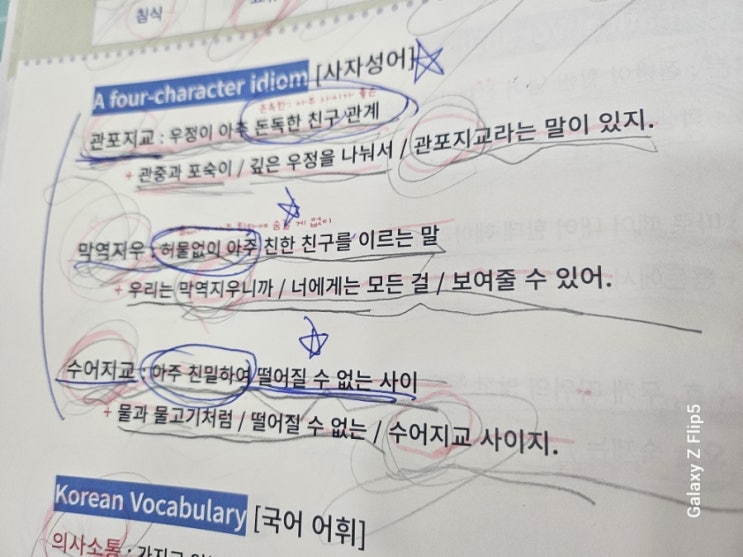 침식
A four-character idiom [사자성어]
관포지교 : 우정이 아주 돈독한 친구 관계
+ 관중과 포숙이 / 깊은 우정을 나눠서 / 관포지교라는 말이 있지.
막역지우 : 허물없이 아주 친한 친구를 이르는 말
+ 우리는 막역지우니까 / 너에게는 모든 걸 / 보여줄 수 있어.
수어지교 : 아주 친밀하여 떨어질 수 없는 사이
+ 물과 물고기처럼 / 떨어질 수 없는 / 수어지교 사이지.
Korean Vocabulary [국어 어휘]
의사소통 : 가지고
Galaxy Z Flip5